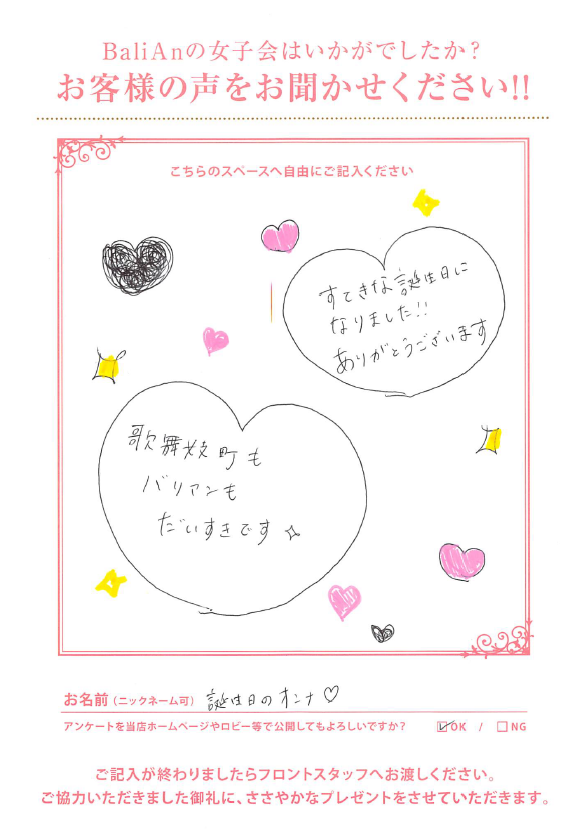 BaliAnの女子会はいかがでしたか?
お客様の声をお聞かせください!!
こちらのスペースへ自由にご記入ください
すてきな誕生日に
なりました!!
ありがとうございます
歌舞伎町も
バリアンも
だいすきです
お名前(ニックネーム可) 誕生日のオンナ♡
アンケートを当店ホームページやロビー等で公開してもよろしいですか? ☑OK / □NG
ご記入が終わりましたらフロントスタッフへお渡しください。
ご協力いただきました御礼に、ささやかなプレゼントをさせていただきます。